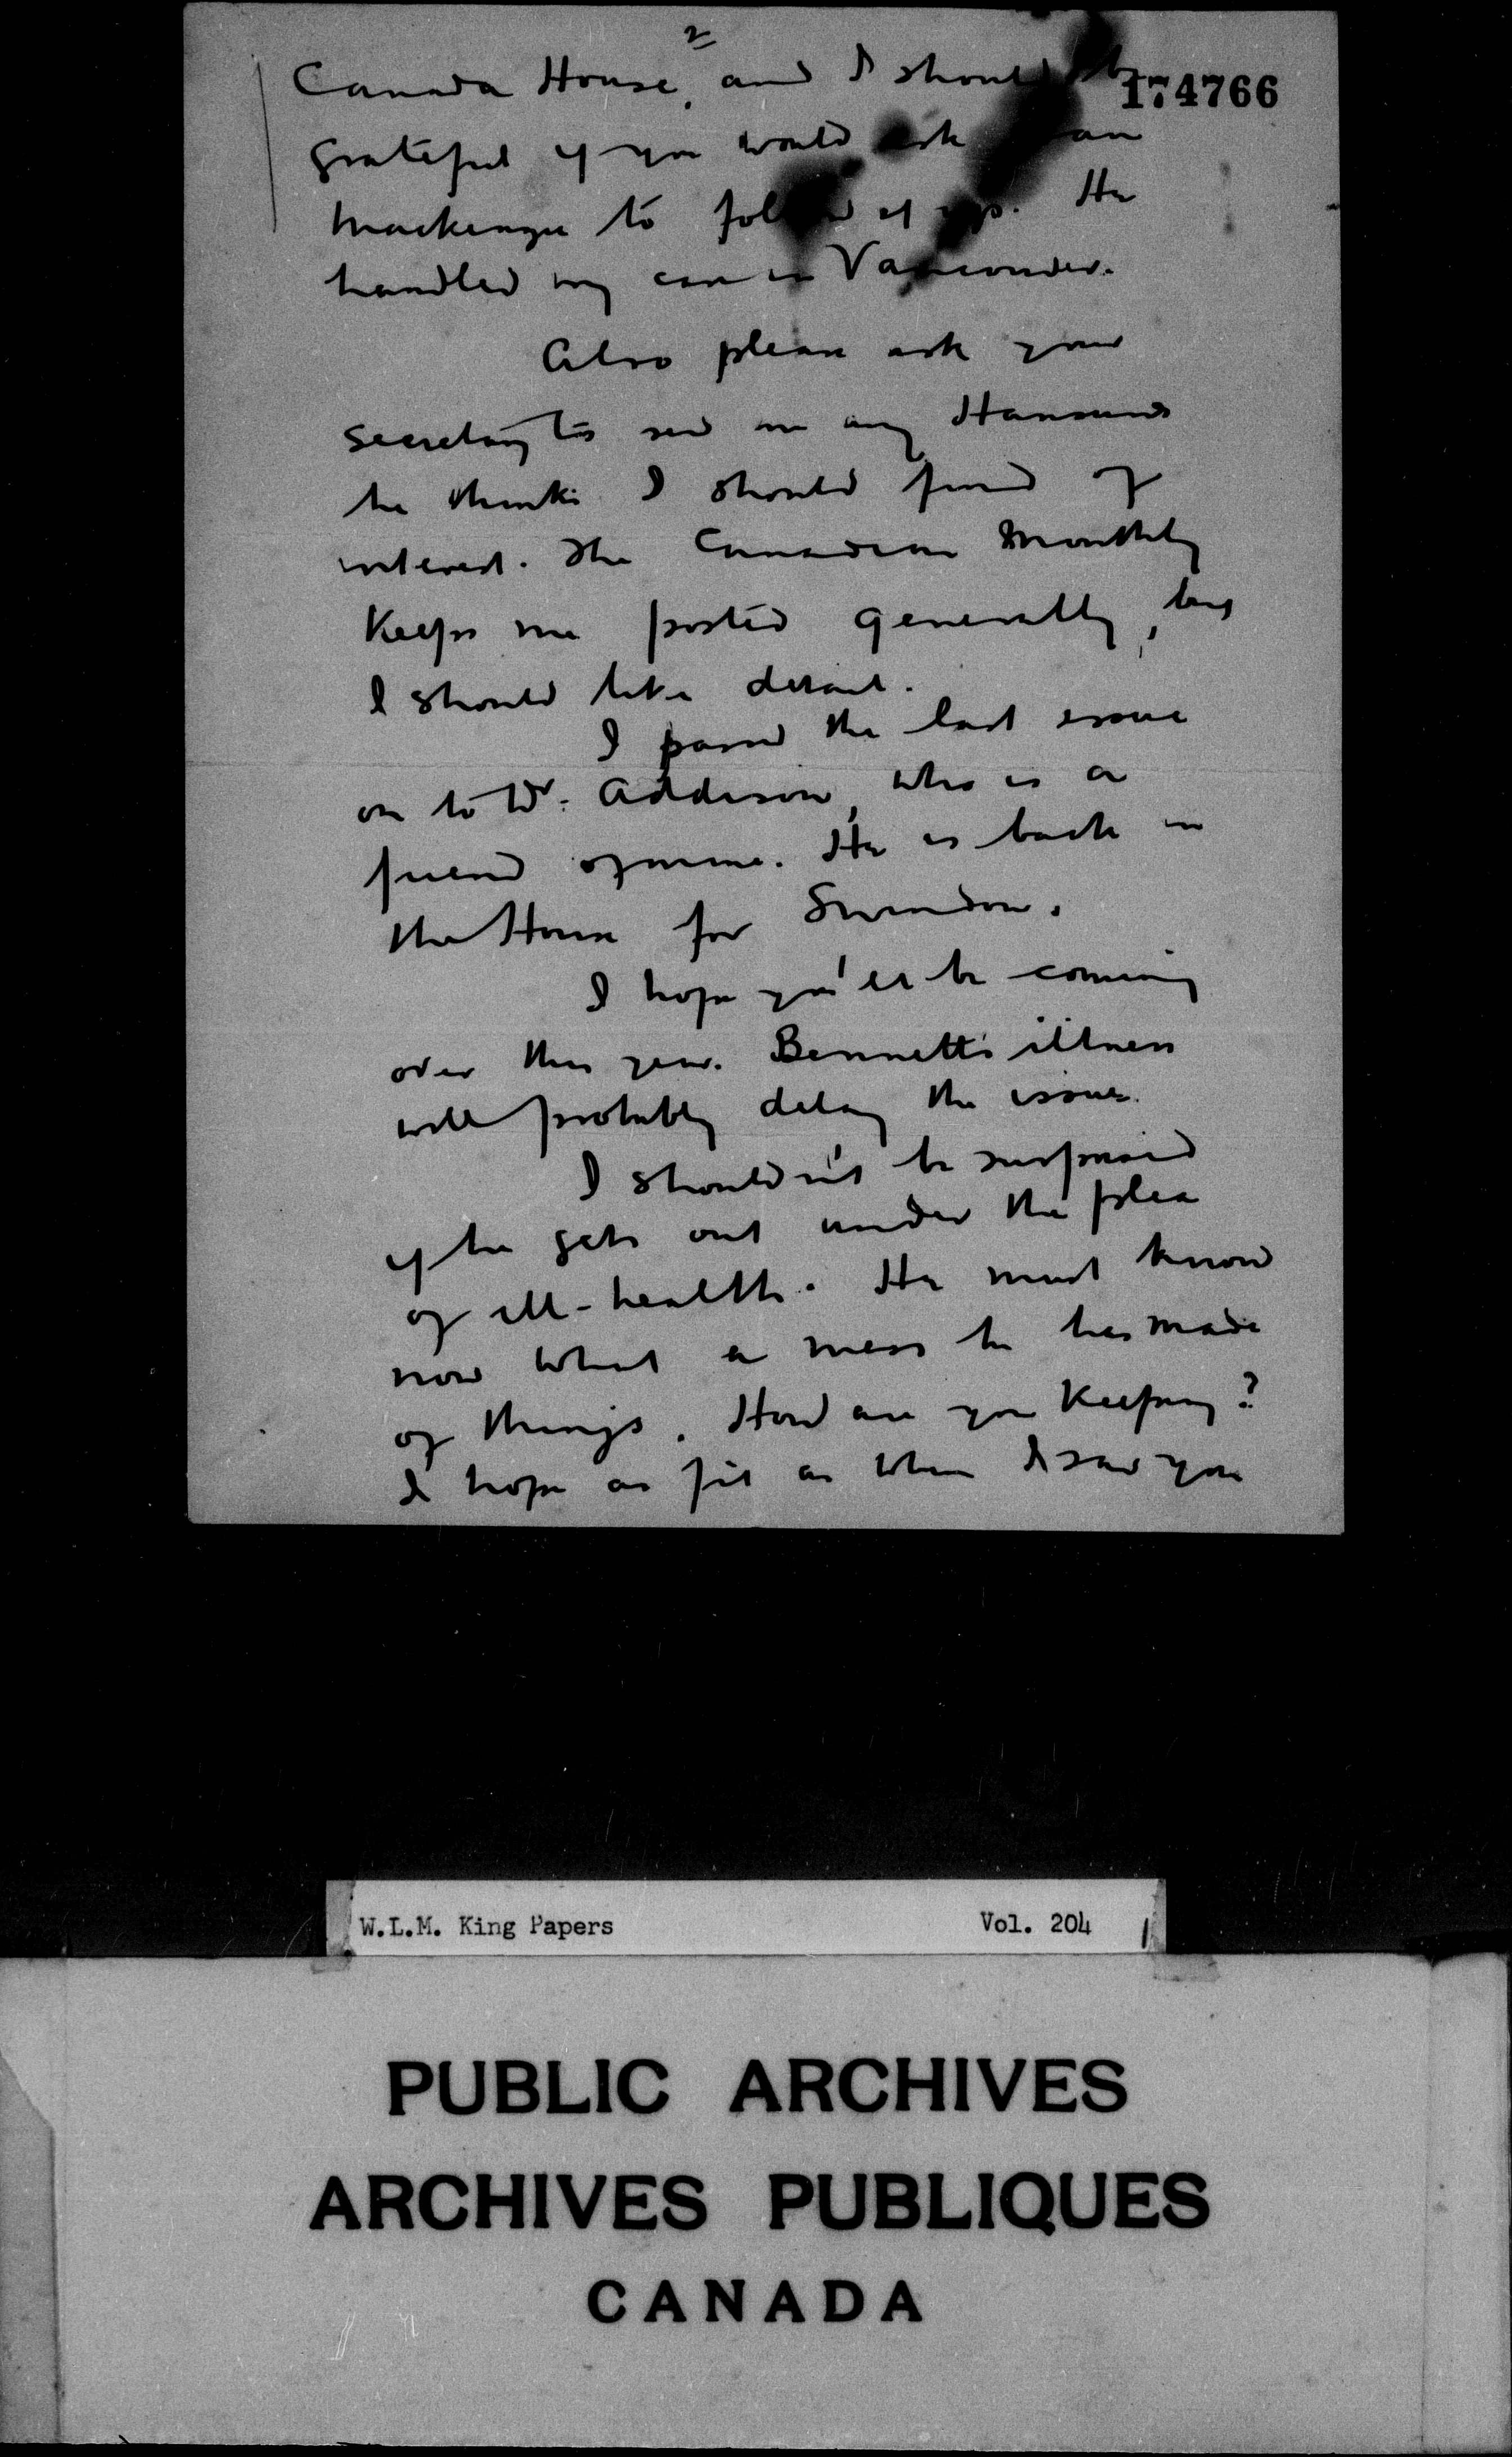 2
Canada House, and I should be
174766
grateful if you would ask Ian
Mackenzie to follow it up. He
handled my case in Vancouver.
Also please ask your
secretary to send me any Hansards
he thinks I should find of
interest. The Canadian Monthly
keeps me posted generally, but
I should like detail.
I passed the last issue
on to Dr. Addison, who is a
friend of mine. He is back in
the House for Swindon.
I hope you'll be coming
over this year. Bennett's illness
will probably delay the issue.
I shouldn't be surprised
if he gets out under the plea
of ill-health. He must know
now what a mess he has made
of things. How are you keeping?
I hope as fit as when I saw you
W.L.M. King Papers Vol. 204
PUBLIC ARCHIVES
ARCHIVES PUBLIQUES
CANADA